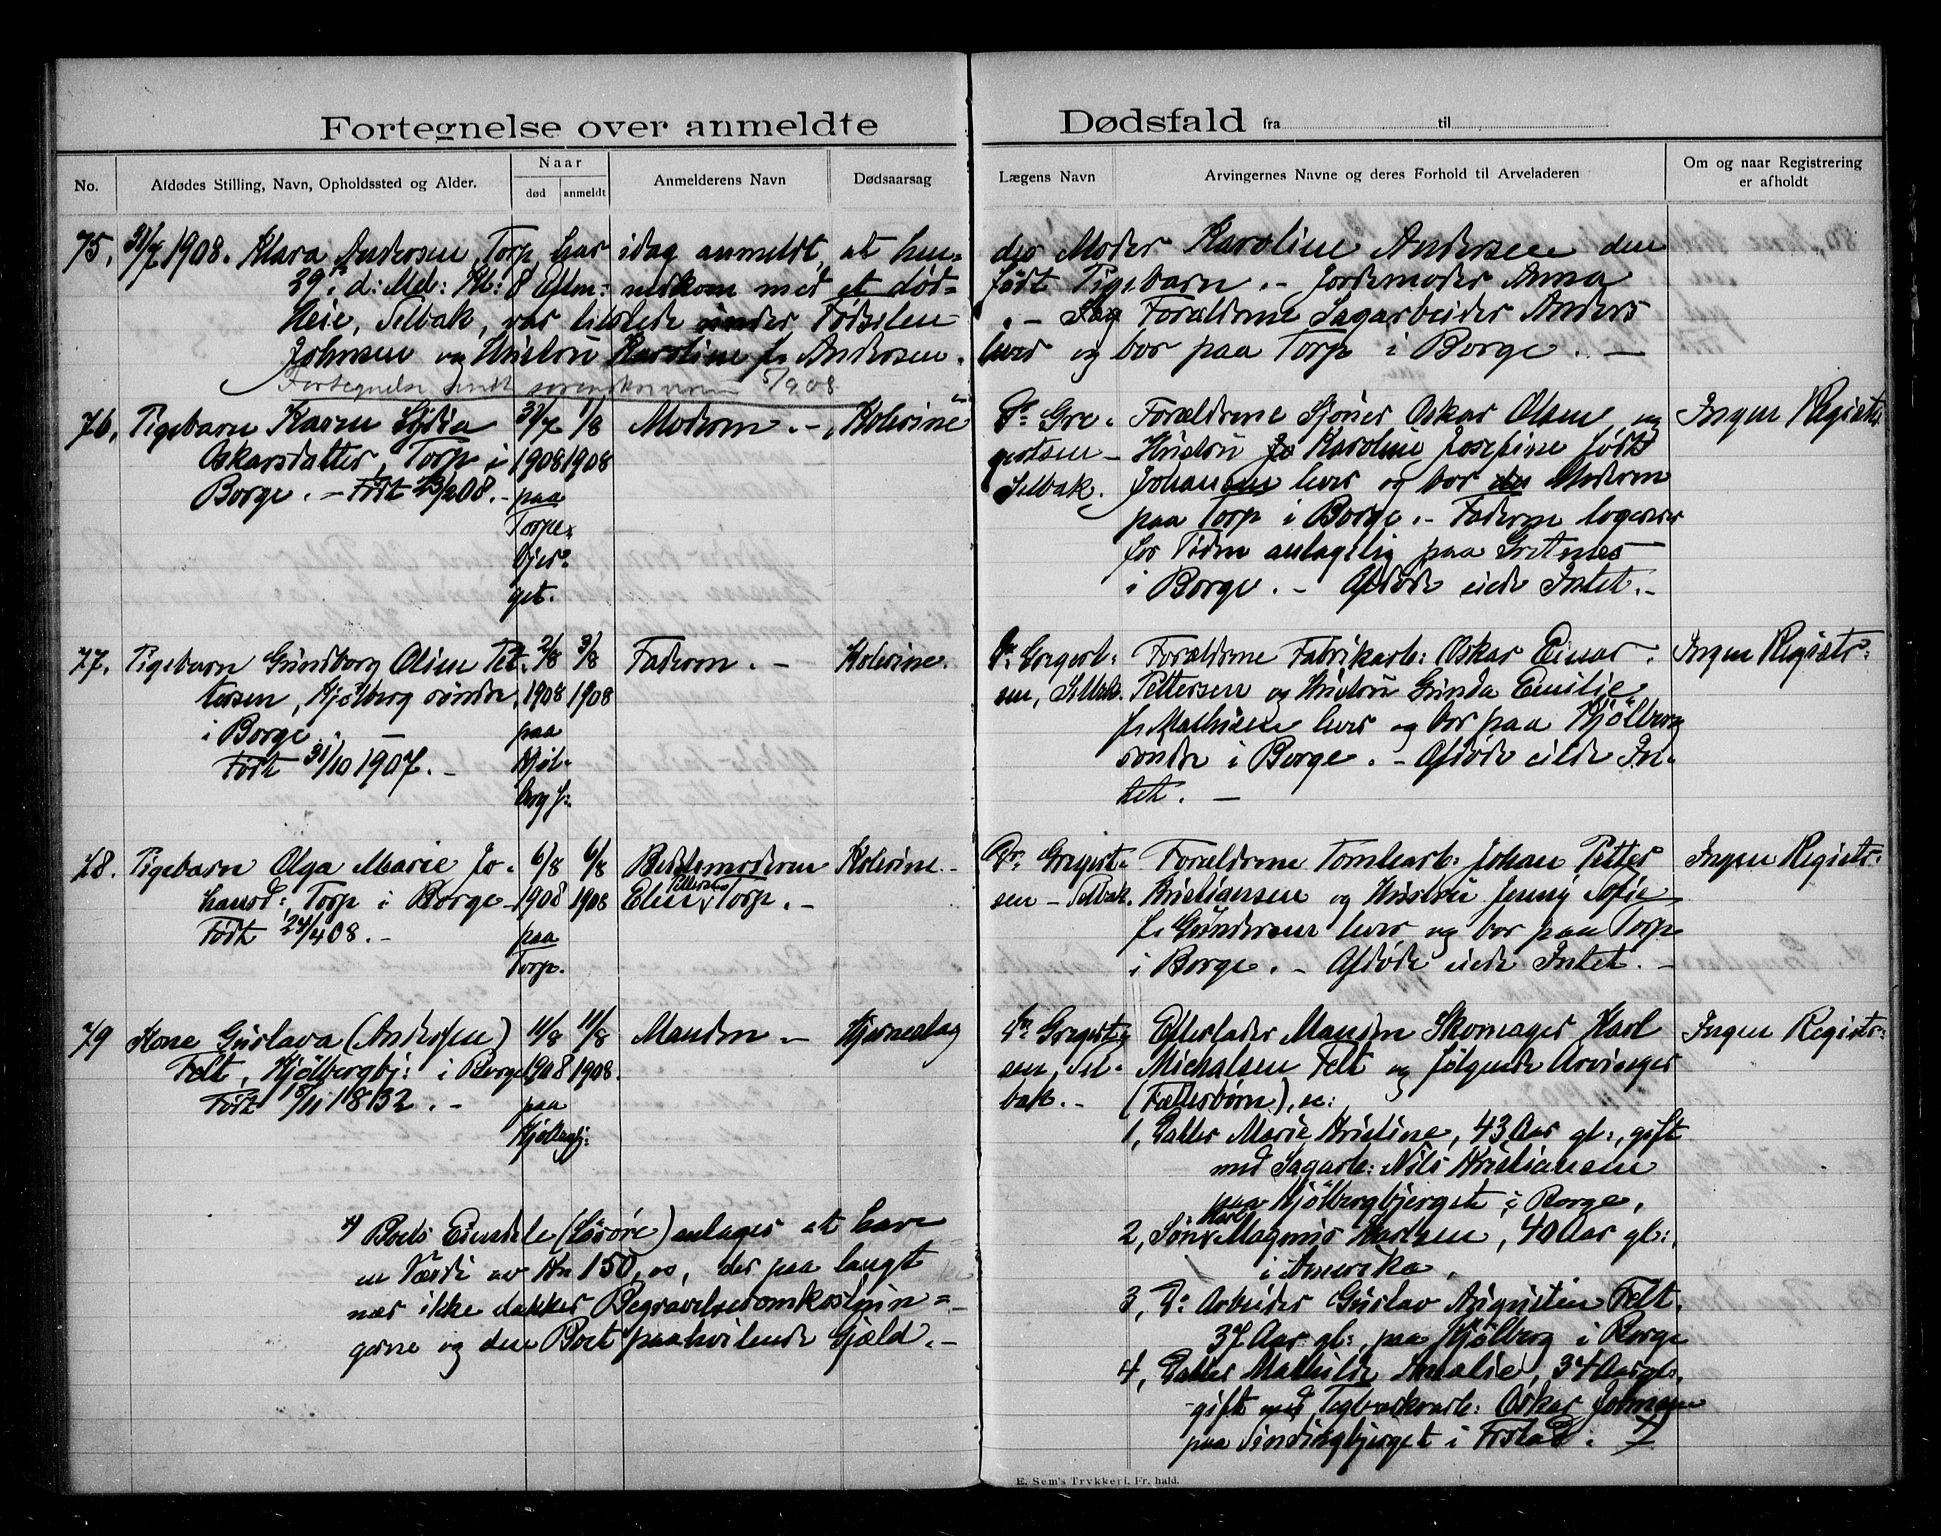 Fortegnelse over anmeldte Dødsfald fra til
No. Afdødes Stilling, Navn, Opholdssted og Alder. Naar død anmeldt Anmelderens Navn Dødsaarsag Lægens Navn Arvingernes Navne og deres Forhold til Arveladeren Om og naar Registrering er afholdt
75. 31/7 1908. Klara Andersen, Torp, har idag anmeldt, at hen=
des Moder Karoline Andersen den
29. d: Md: Kl: 8 Eftm: nedkom med et død=
født Tigebarn. - Jordemoder Anna
Heie, Selbak, var tilstede under Fødselen
. - Forældrene Sagarbeider Anders
Johnsen og Hustru Karoline f. Andersen
lever og bor paa Torp i Borge. -
Fortegnelse sendt sorenskriveren 5/9 08.
76. Pigebarn Karen Lydia
Oskarsdatter, Torp i
Borge. - Født 23/2 08. -
31/7
1908
paa
Torpe=
bjer=
get.
1/8
1908
Moderen. -
Kolerine
Dr. Gre=
gertsen -
Selbak.
Forældrene Sjøner Oskar Olsen og
Hustru Karoline Josefine født
Johansen lever og bor Moderen
paa Torp i Borge. - Faderen logerer
for Tiden antagelig paa Gretnes
i Borge. - Afdøde eiede Intet. -
Ingen Registr
77. Pigebarn Gundborg Oline Pet=
tersen, Kjølberg søndre
i Borge. -
Født 31/10 1907. -
2/8
1908
paa
Kjøl=
berg s:
3/8
1908
Faderen. -
Kolerine.
Dr. Gregert=
sen, Selbak.
Forældrene Fabrikarb: Oskar Einar
Pettersen og Hustru Gunda Emilie
f. Mathisen lever og bor paa Kjølberg
søndre i Borge. - Afdøde eiede In=
tet. -
Ingen Registr:
78. Pigebarn Olga Marie Jo=
hansd: Torp i Borge
Født 24/4 08. -
6/8
1908
paa
Torp.
6/8
1908
Bestemoderen
Elin Pettersen Torp. -
Kolerine. -
Dr. Gregert=
sen - Selbak.
Forældrene Tomtearb: Johan Petter
Kristiansen og Hustru Jenny Sofie
f. Gundersen lever og bor paa Torp
i Borge. - Afdøde eiede Intet. -
Ingen Registr:
79 Kone Gustava (Andersen)
Felt, Kjølbergbj: i Borge
Født /11 1832. -
11/8
1908
paa
Kjølbergbj:
11/8
1908.
Manden -
Hjerneslag
Dr. Gregert=
sen, Sel=
bak. -
Efterlader Manden Skomager Karl
Michalsen Felt og følgende Arvinger
(Fællesbørn), sc:
1, Datter Marie Kristine, 43 Aar gl:, gift
med Sagarb: Nils Kristiansen
paa Kjølbergbjerget i Borge,
2, Søn Karl Magnus Karlsen, 40 Aar gl:,
i Amerika,
3, Do Arbeider Gustav Augustin Felt,
37 Aar gl:, paa Kjølberg i Borge
4, Datter Mathilde Amalie, 34 Aar gl:
gift med Teglværksarb: Oskar Johnsen
paa Sindingbjerget i Frstad. -
Ingen Registr:
Boets Eiendele (Løsøre) antages at have
en Værdi av Kr 150,00, der paa langt
nær ikke dækker Begravelsesomkostnin=
gerne og den Boet paahvilende Gjæld. -
E. Sem's Trykkeri, Fr. hald.